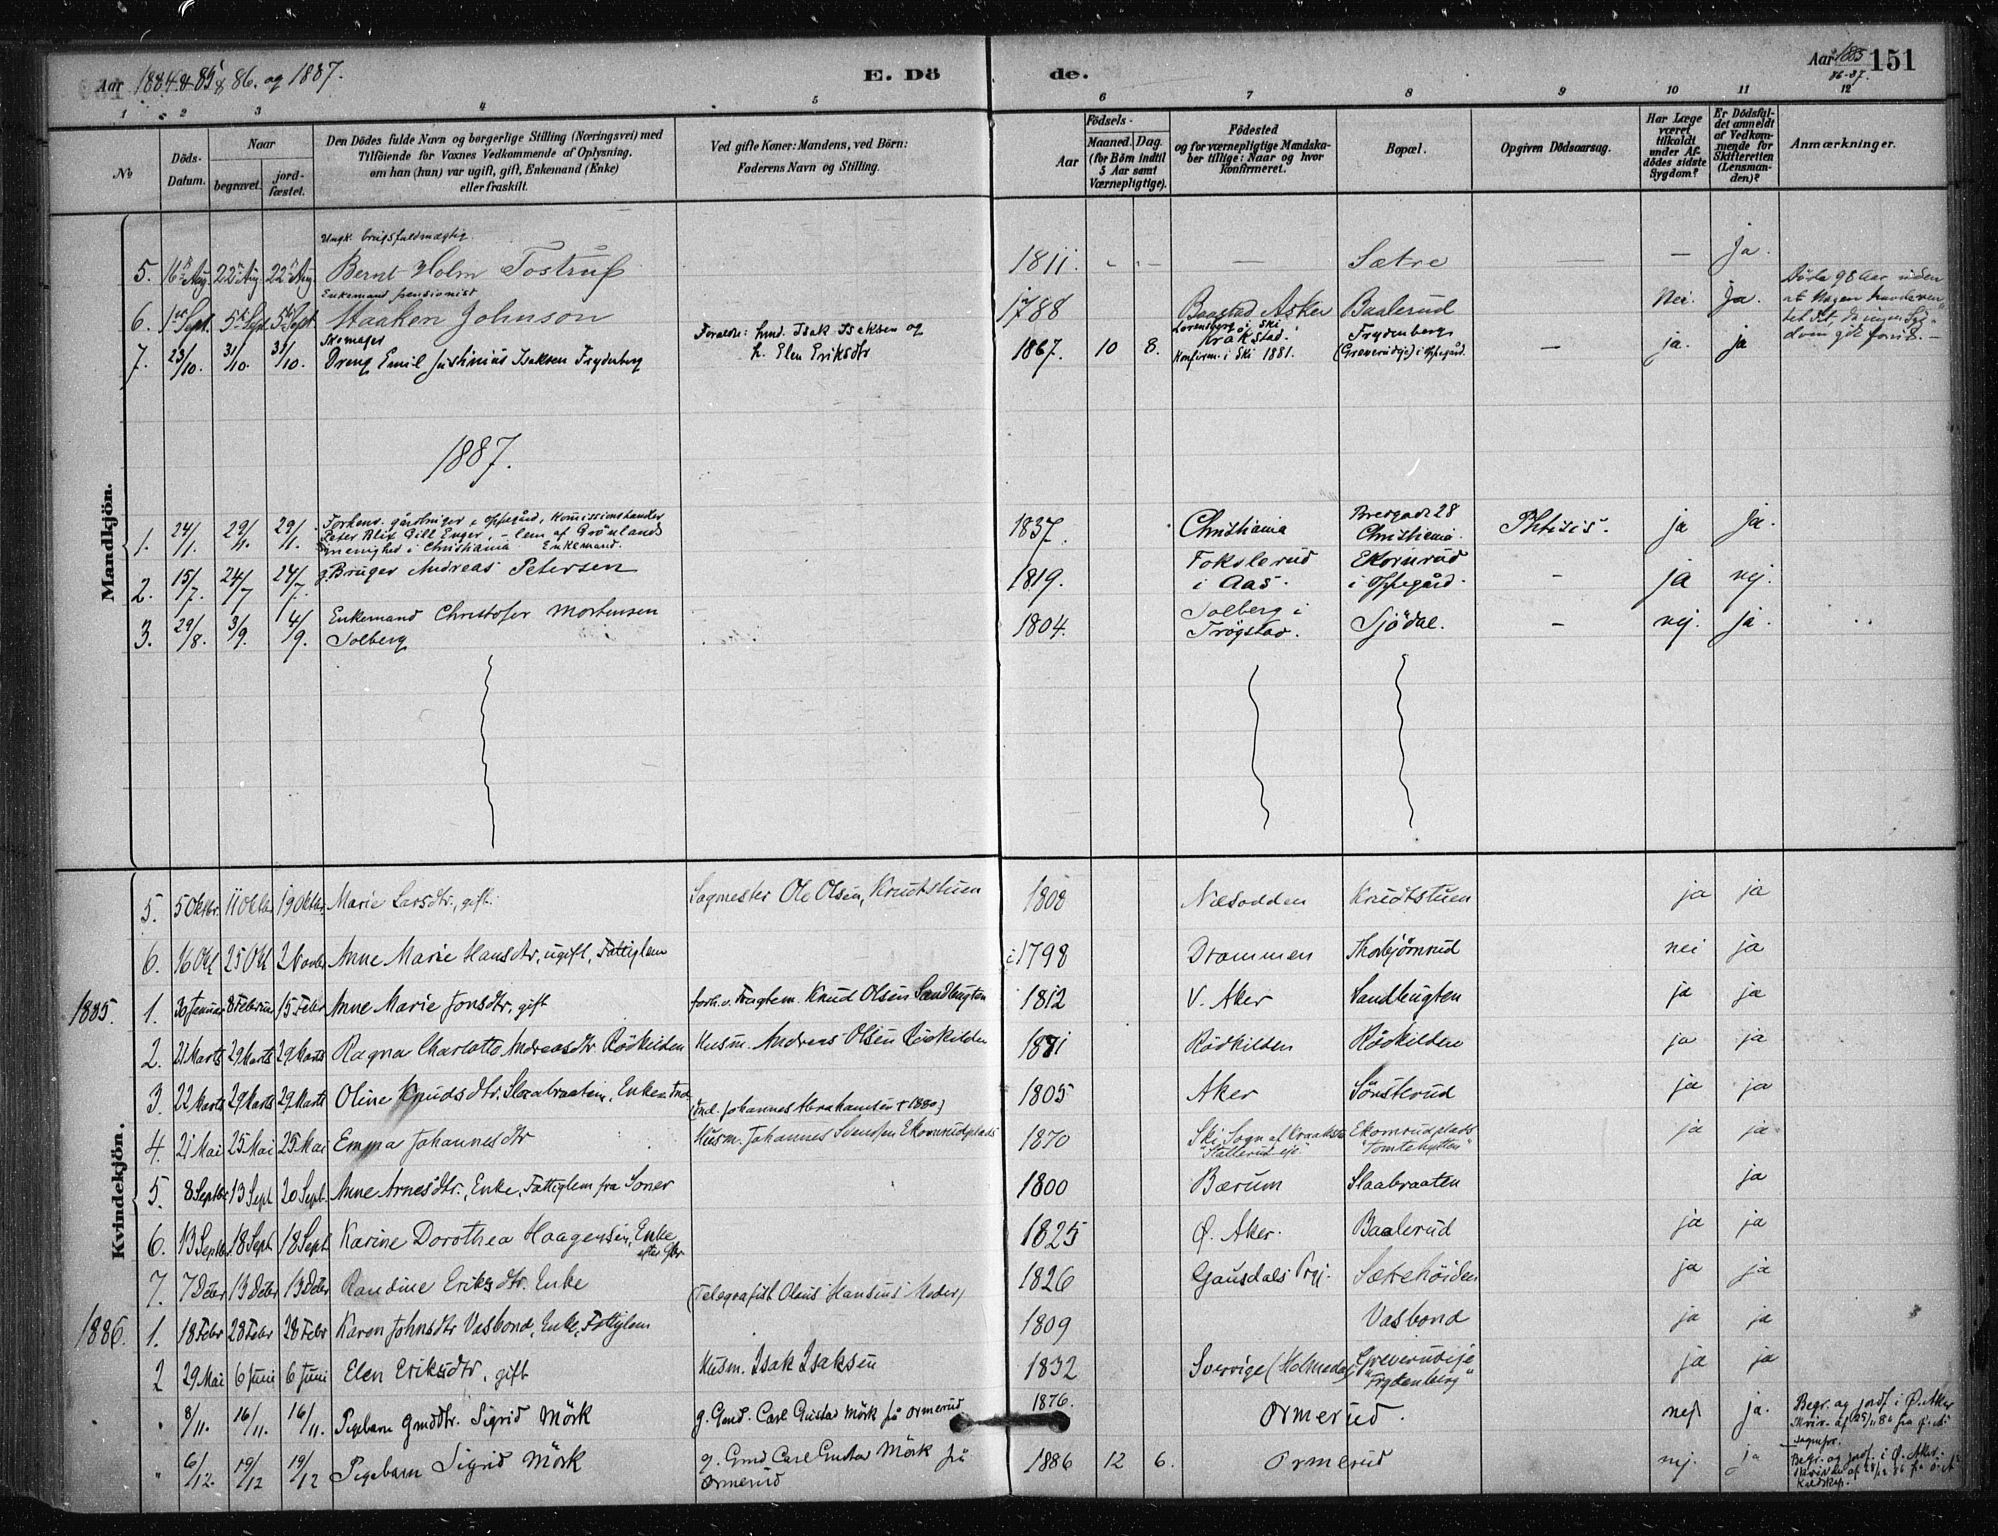 Aar 1884 & 85 & 86. og 1887. E. Dö de. Aar 1885 86-87. 151
1 2 3 4 5 6 7 8 9 10 11 12
No
Döds-Datum.
Naar
begravet.
jord-fæstet.
Den Dödes fulde Navn og borgerlige Stilling (Næringsvei) med
Tilföiende for Voxnes Vedkommende af Oplysning,
om han (hun) var ugift, gift, Enkemand (Enke)
eller fraskilt.
Ved gifte Koner: Mandens, ved Börn:
Faderens Navn og Stilling.
Födsels-
Aar
Maaned. Dag.
(for Börn indtil
5 Aar samt
Værnepligtige).
Födested
og for værnepligtige Mandska-
ber tillige: Naar og hvor
konfirmeret.
Bopæl.
Opgiven Dödsaarsag.
Har Læge
været
tilkaldt
under Af-
dödes sidste
Sygdom?
Er Dödsfal-
det anmeldt
af Vedkom-
mende for
Skifteretten
(Lensman-
den)?
Anmærkninger.
Mandkjön.
Ungk. brugsfuldmægtig
5. 16 Aug 22 Aug 22 Aug. Bernt Holm Tostrup 1811. — — — Sætre — — Ja.
Enkemand pensionist
6. 1 Sept. 5 Sept 5 Sept Haaken Johnson 1788 Baastad Asker Baalerud Nei. Ja.
Döde 98 Aar uden
Skomager
7. 23/10. 31/10 31/10. Dreng Emil Justinius Isaksen Frydenberg
Forældre: husm. Isak Isaksen og
h. Elen Eriksdtr
1867. 10 8.
Lorensberg i Ski
Krakstad.
Konfirm. i Ski 1881.
Frydenberg
(Greverudeje) i Oppegård.
— ja. ja
1887.
1. 24/1. 29/1. 29/1.
Forhenv. gårdbruger i Oppegård, Kommissionshandler
Peter Blix Gill Enger, - lem af Grönlands
menighed i Christiania Enkemand.
1837. Christiania
Bredgade 28
Christiania.
Phtisis. ja Ja.
2. 15/7. 24/7 24/7. g.Bruger Andreas Petersen 1819.
Fokslerud
i Aas.
Ekornrud
i Oppegård.
— ja nej.
3. 29/8. 3/9. 4/9.
Enkemand Christofer Mortensen
Solberg
1804.
Solberg i
Trögstad.
Sjödal. — nej. ja.
Kvindekjön.
5. 5 Oktbr. 11 Oktbr 19 Oktbr. Marie Larsdtr., gift. Sagmester Ole Olsen, Knudtstuen 1808 Næsodden Knudtstuen ja ja
6. 16 Okt 25 Okt 2 Novbr Anne Marie Hansdtr, ugift, Fattiglem i 1798 Drammen Thorbjörnrud nei ja
1885. 1. 30 Januar 8 Februar 15 Febr Anne Marie Jonsdtr, gift forh.v. Knud Olsen Sandbugten 1812 V. Aker Sandbugten ja ja
2. 21 Marts 29 Marts 29 Marts Ragna Charlotte Andreasdtr. Rödkilden Husm. Andreas Olsen Rödkilden 1881 Rödkilden Rödkilden ja ja
3. 22 Marts 29 Marts 29 Marts Oline Knudsdtr. Slaabraaten, Enke, Ind.
(Ind. Johannes Abrahamsen † 1880)
1805 Aker Sönsterud ja ja
4. 21 Mai 25 Mai 25 Mai Emma Johannesdtr Husm. Johannes Svensen Ekornrudplads 1870
Ski Sogn af Kraakst.
"Stallerud eje"
Ekornrudplads
"Tomtehytten"
ja ja
5. 8 Septbr 13 Sept 20 Sept. Anne Arnesdtr., Enke, Fattiglem fra Soner 1800 Bærum Slaabraaten ja
6. 13 Septbr 18 Sept 18 Sept. Karine Dorothea Haagensen, Enke
efter Gbr.
1825 Ö. Aker. Baalerud ja ja
7. 7 Decbr 13 Decbr 13 Decbr Randine Eriksdtr. Enke (Telegrafist Olaus Hansens Moder) 1826 Gausdals Prgj. Sætrehöiden ja ja
1886. 1. 18 Febr 28 Febr 28 Febr Karen Johnsdtr Vasbond, Enke, Fattiglem 1809 Vasbond ja ja
2 29 Mai 6 Juni 6 Juni Elen Eriksdtr, gift Husm. Isak Isaksen 1832 Sverrige (Holmedal)
Greverudeje
"Frydenberg"
ja ja
" 8/11. 16/11. 16/11. Pigebarn Gmddtr. Sigrid Mörk g. Gmd. Carl Gustav Mörk på Ormerud 1876. Ormerud. nej ja.
Begr. og jordf. i Ö. Aker
" 6/12. 19/12 19/12 Pigebarn Sigrid Mörk
g. Gmd Carl Gustav Mörk på
Ormerud
1886 12 6. Ormerud nej. ja
Begr. og jordf. i Ö. Aker.